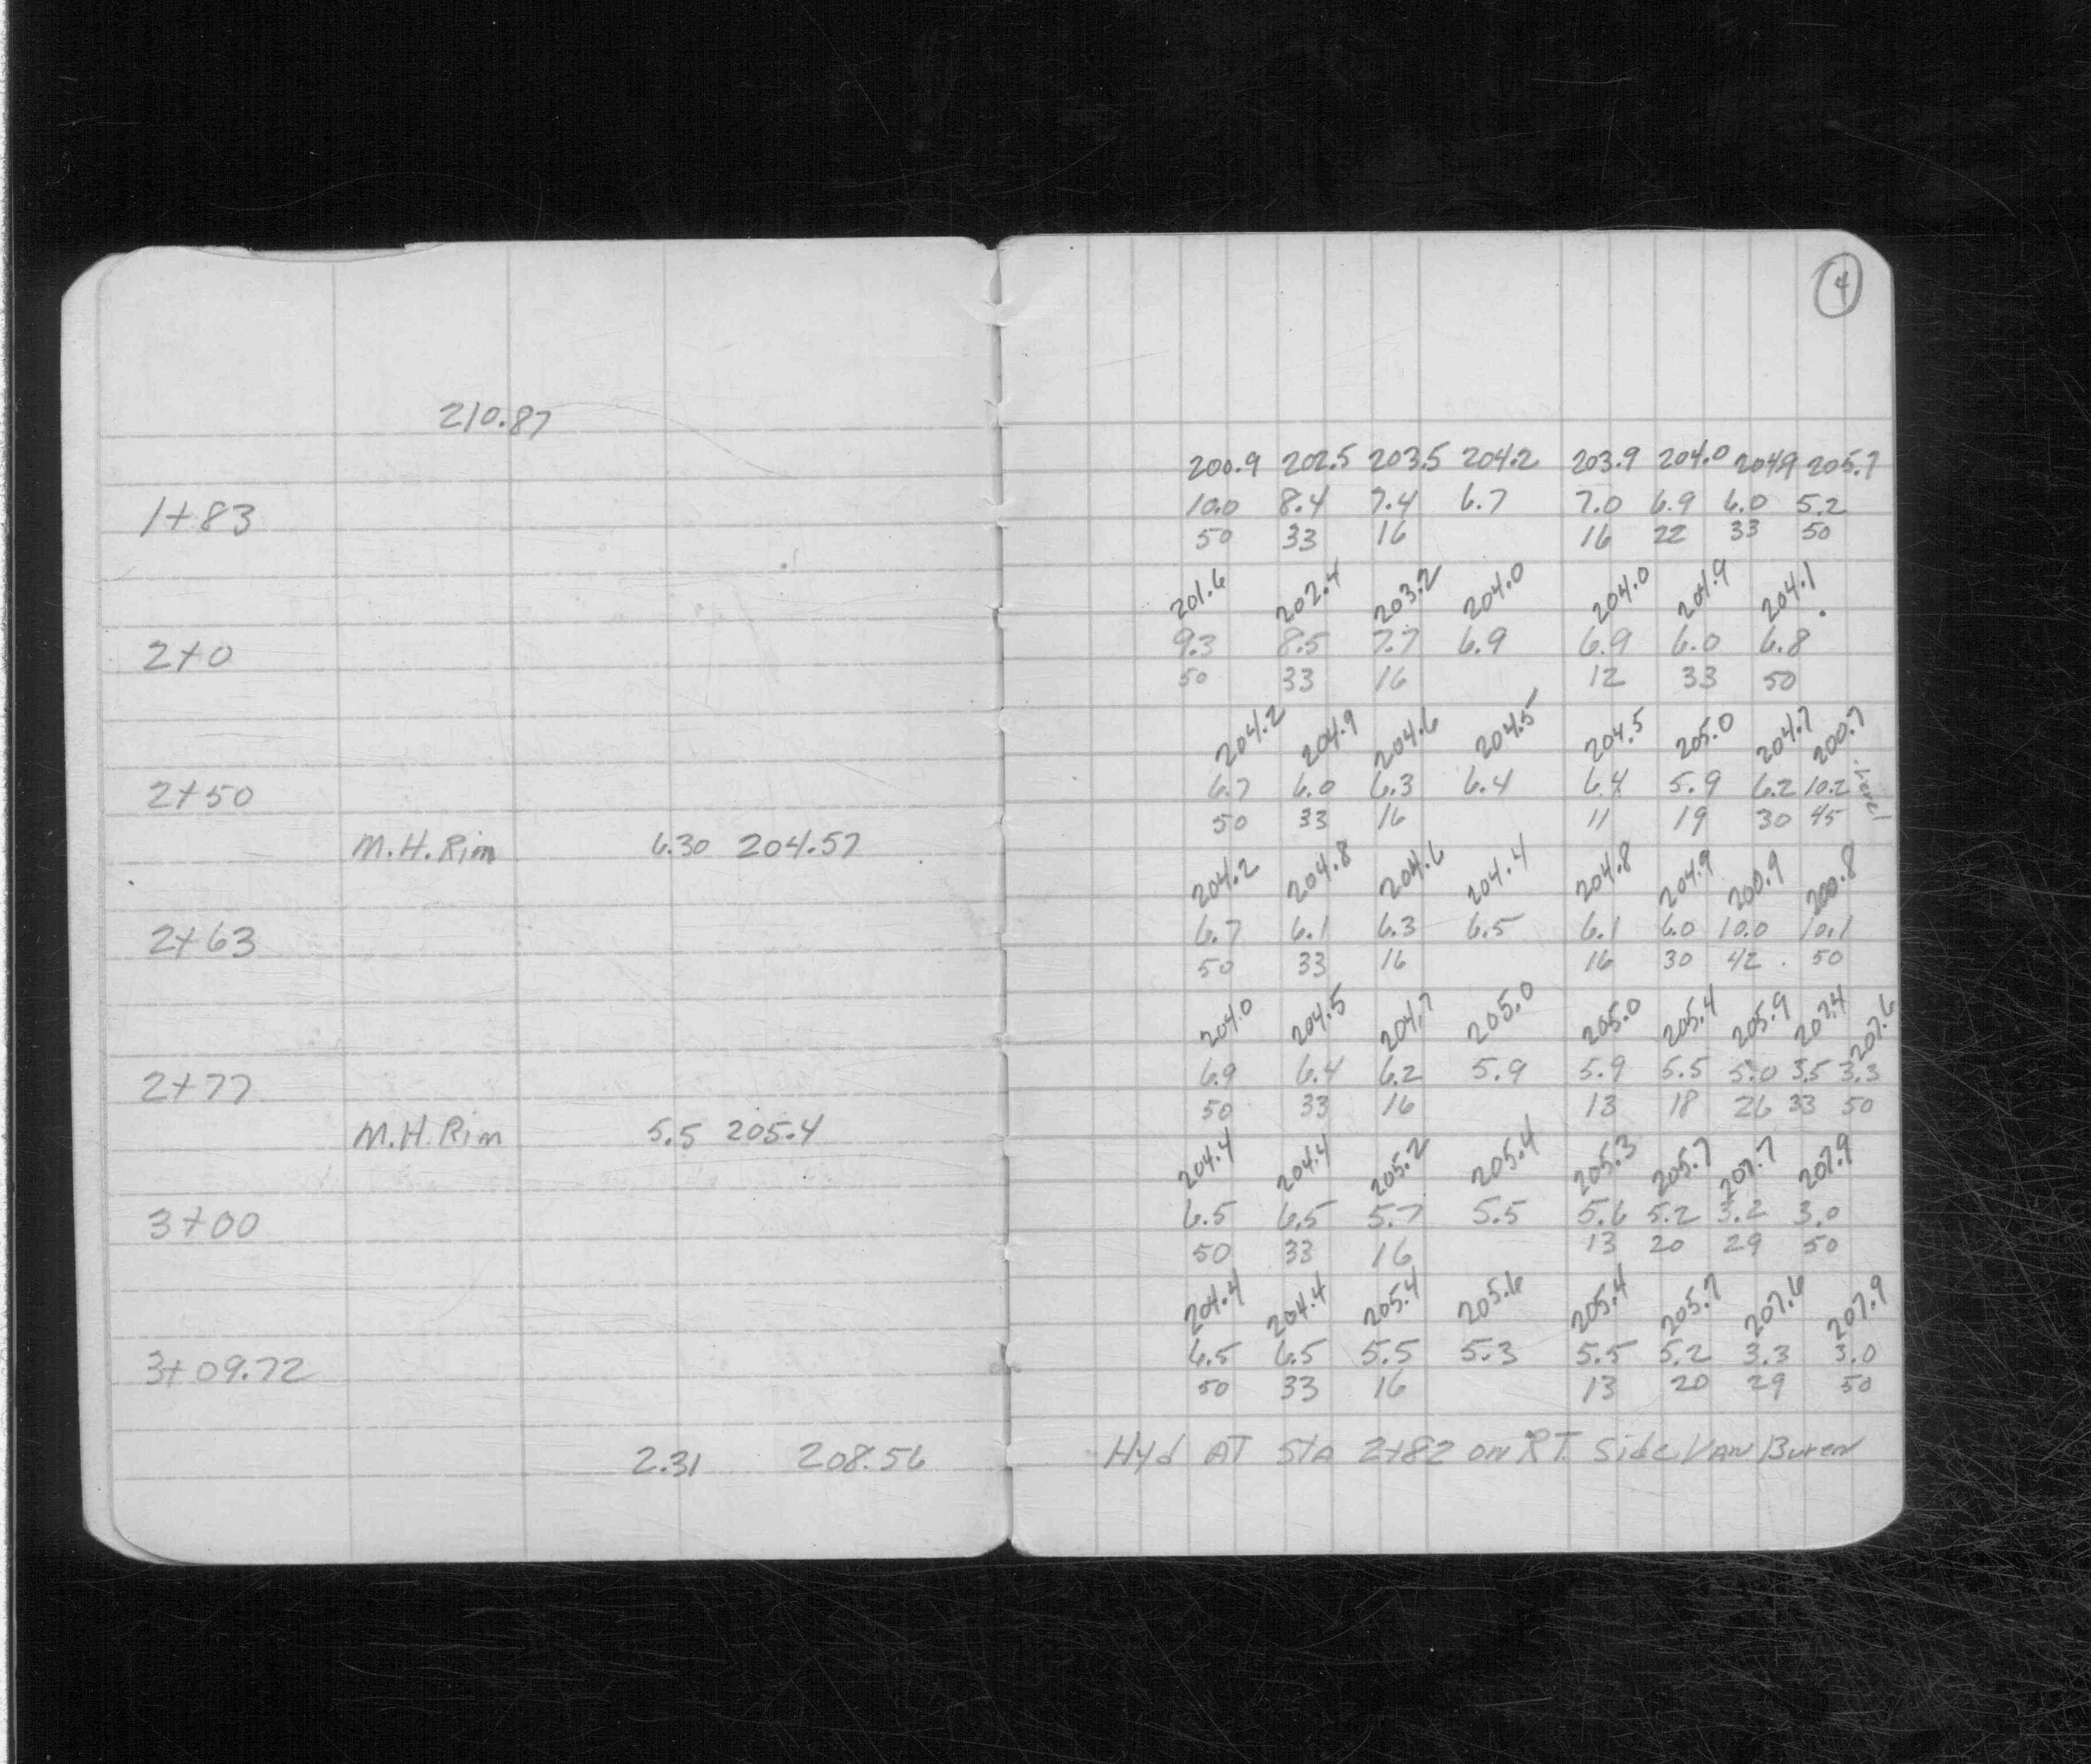 4
210.87
200.9 202.5 203.5 204.2 203.9 204.0 204.9 205.7
1+83 10.0 8.4 7.4 6.7 7.0 6.9 6.0 5.2
50 33 16 16 22 33 50
201.6 202.4 203.2 204.0 204.0 204.9 204.1
2+0 9.3 8.5 7.7 6.9 6.9 6.0 6.8
50 33 16 12 33 50
204.2 204.9 204.6 204.5 204.5 205.0 204.7 200.7
2+50 6.7 6.0 6.3 6.4 6.4 5.9 6.2 10.2
50 33 16 11 19 30 45
M.H. Rim 6.30 204.57
204.2 204.8 204.6 204.4 204.8 204.9 200.9 200.8
2+63 6.7 6.1 6.3 6.5 6.1 6.0 10.0 10.1
50 33 16 16 30 42 50
204.0 204.5 204.7 205.0 205.0 205.4 205.9 207.4 207.6
2+77 6.9 6.4 6.2 5.9 5.9 5.5 5.0 3.5 3.3
50 33 16 13 18 26 33 50
M.H. Rim 5.5 205.4
204.4 204.4 205.2 205.4 205.3 205.7 207.7 207.9
3+00 6.5 6.5 5.7 5.5 5.6 5.2 3.2 3.0
50 33 16 13 20 29 50
204.4 204.4 205.4 205.6 205.4 205.7 207.6 207.9
3+09.72 6.5 6.5 5.5 5.3 5.5 5.2 3.3 3.0
50 33 16 13 20 29 50
2.31 208.56 Hyd AT Sta 2+82 on RT. Side Van Buren